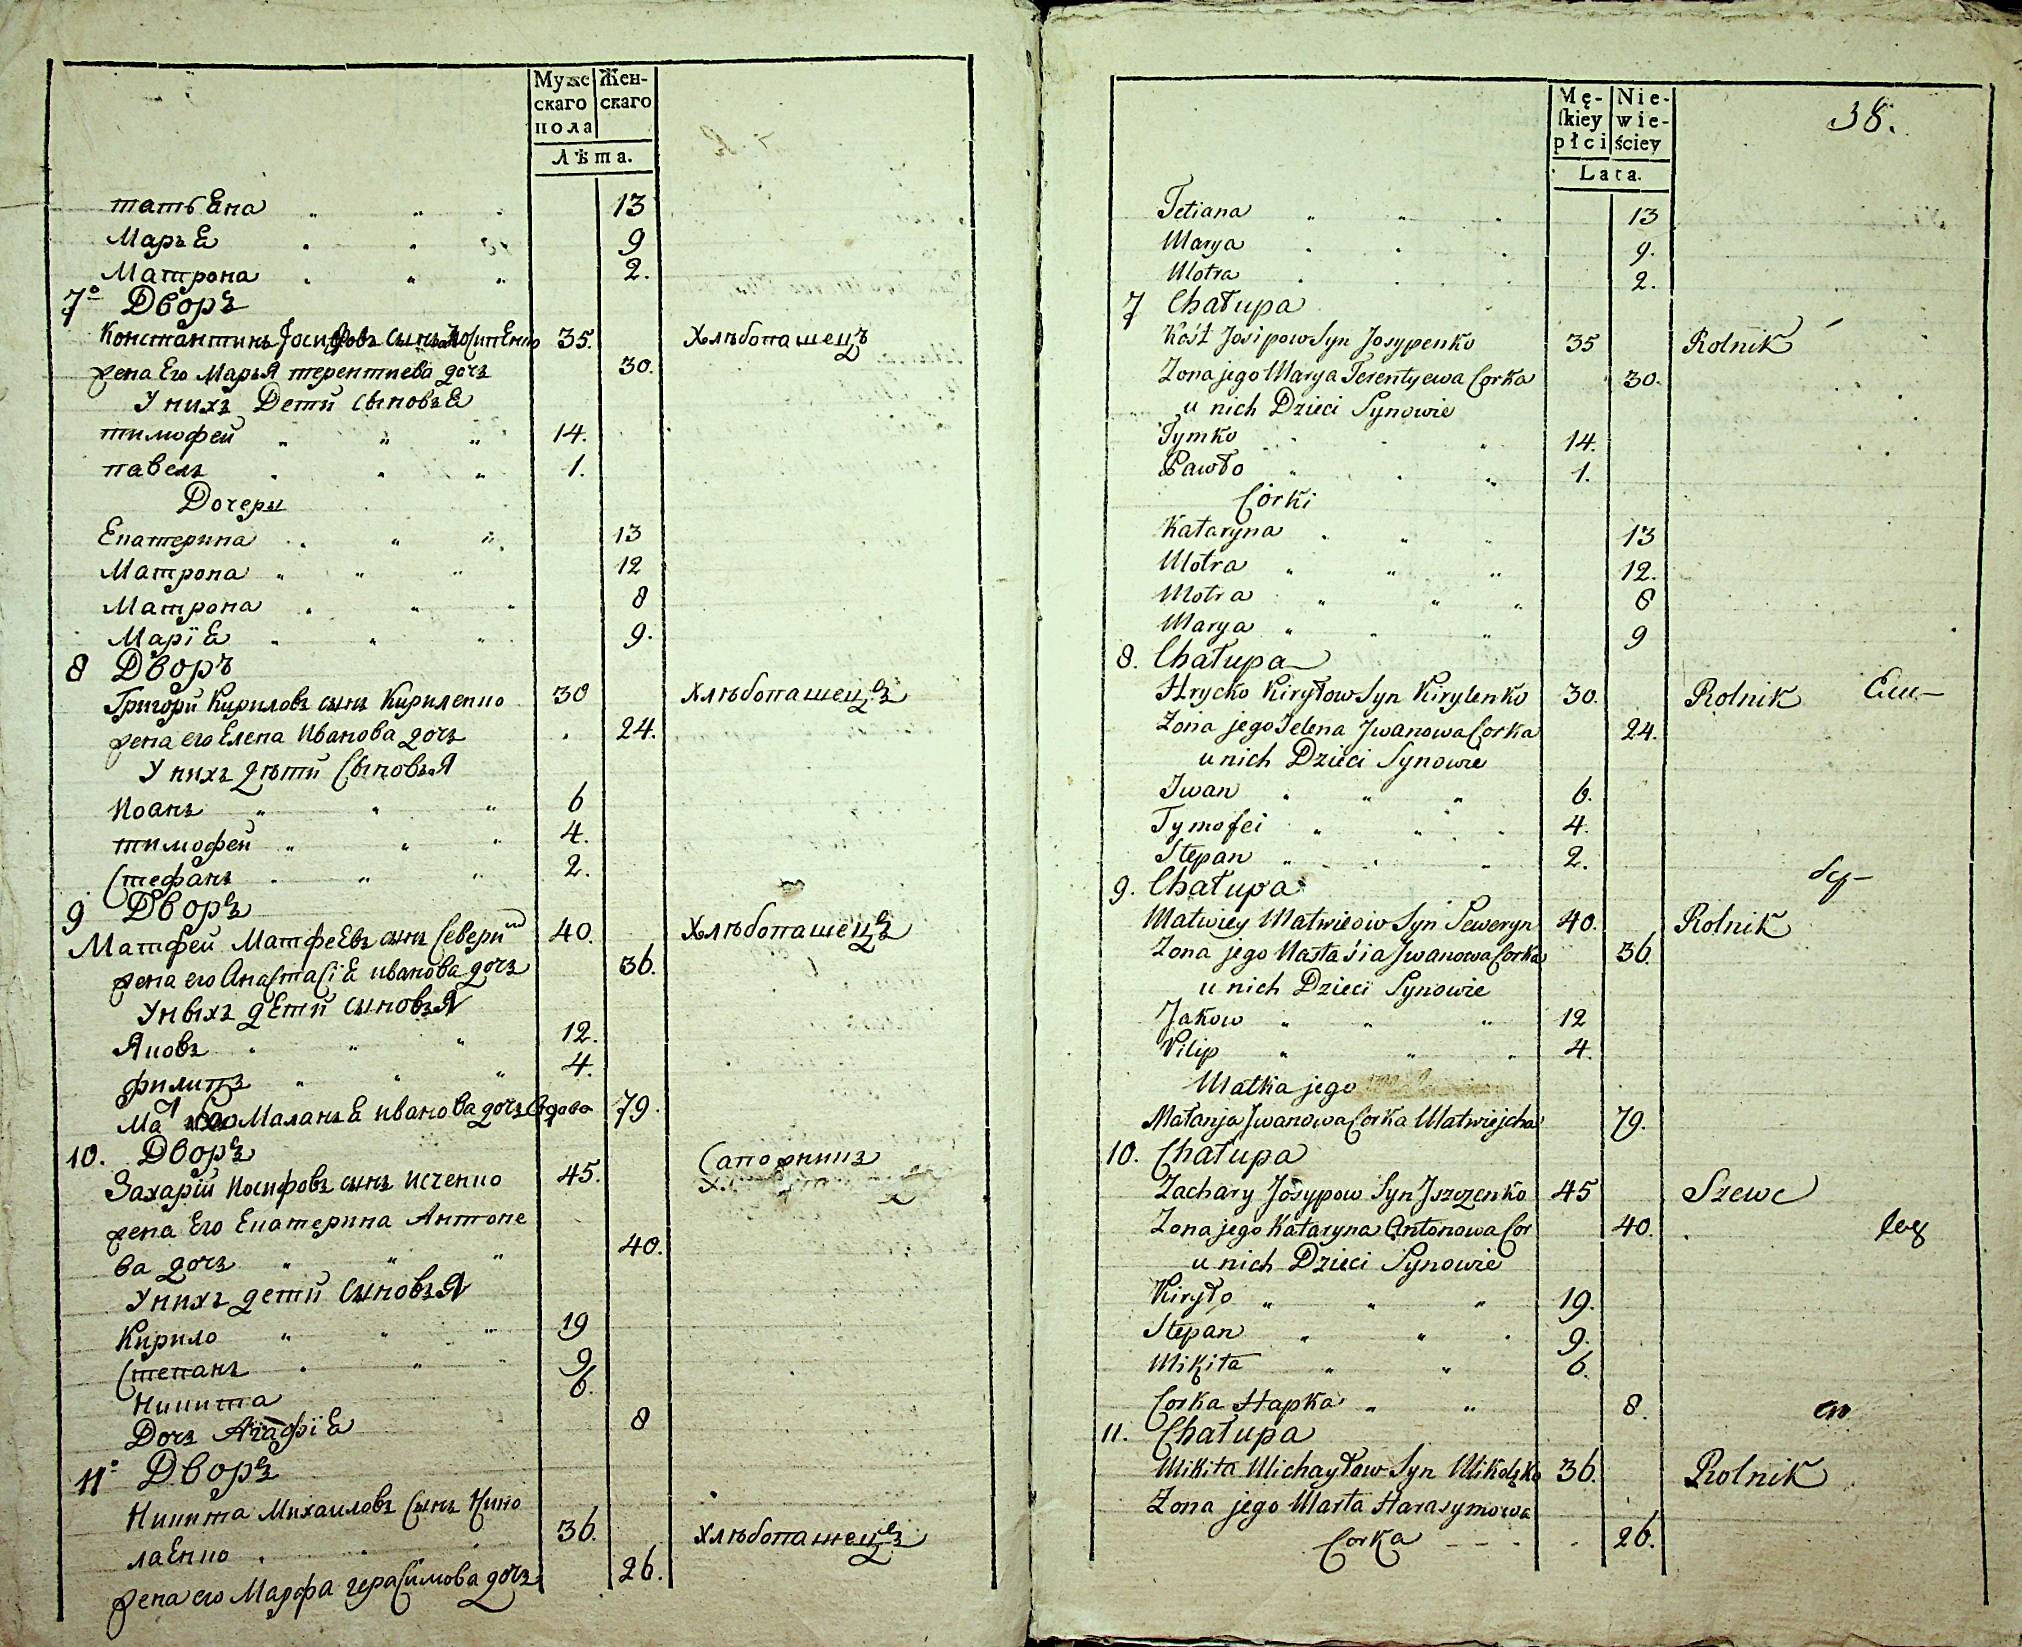 Муже Жен-
скаго скаго
пола
Лѣта.
татьЕна 13
МарьЕ 9
Матрона 2.
7° Дворъ
Константинъ Јосифовъ сынъ ЮсипЕнко 35. Хлѣбопашецъ
жена Его Марья терентиева дочь 30.
У нихъ Дети сыновьЕ
тимофей 14.
павелъ 1.
Дочери
Екатерина 13
Матрона 12
Матрона 8
МаріЕ 9.
8 Дворъ
Григори Кириловъ сынъ Кириленко 30 Хлѣбопашецъ
жена его Елена Иванова дочь 24.
У нихъ дѣти Сыновья
Иоанъ 6
тимофей 4.
Стефанъ 2.
9 Дворъ
Матфей МатфеЕвъ сынъ Севери 40. Хлѣбопашецъ
жена его АнастасіЕ иванова дочь 36.
Уныхъ дЕти сыновья
Яковъ 12.
филипъ 4.
МаланьЕ иванова дочь Вдова 79.
10. Дворъ
Захарій Иосифовъ сынъ исченко 45. Сапожникъ
жена Его Екатерина Антоне
ва дочь 40.
Унихъ дети Сыновья
Кирило 19
Степанъ 9
Никита 6.
Дочь АгафіЕ 8
11° Дворъ
Никита Михаиловъ Сынъ Нико
лаЕнко 36. Хлѣбопашецъ
жена его Марфа герасимова дочь 26.
Mę- Nie-
ſkiey wie-
płci ściey
Lata.
38.
Tetiana 13
Marya 9.
Motra 2.
7 Chałupa
Kośt Josipow Syn Josypenko 35 Rolnik
Zona jego Marya Terentyewa Corka 30.
u nich Dzieci Synowie
Tymko 14.
Pawło 1.
Córki
Kataryna 13
Motra 12.
Motra 8
Marya 9
8. Chałupa
Hrycko Kiryłow Syn Kirylenko 30. Rolnik
Zona jego Jelena Jwanowa Corka 24.
u nich Dzieci Synowie
Jwan 6.
Tymofei 4.
Stepan 2.
9. Chałupa
Matwiey Matwieow Syn Seweryn 40. Rolnik
Zona jego Nastasia Jwanowa Corka 36.
u nich Dzieci Synowie
Jakow 12
Filip 4.
Matka jego
Małanja Jwanowa Corka Matwiejcha 79.
10. Chałupa
Zachary Josypow Syn Jszczenko 45 Szewc
Zona jego Kataryna Antonowa Cor 40.
u nich Dzieci Synowie
Kiryło 19.
Stepan 9.
Mikita 6.
Corka Hapka 8.
11. Chałupa
Mikita Michayłow Syn Mikołzko 36. Rolnik
Zona jego Marta Harasymowa
Corka 26.